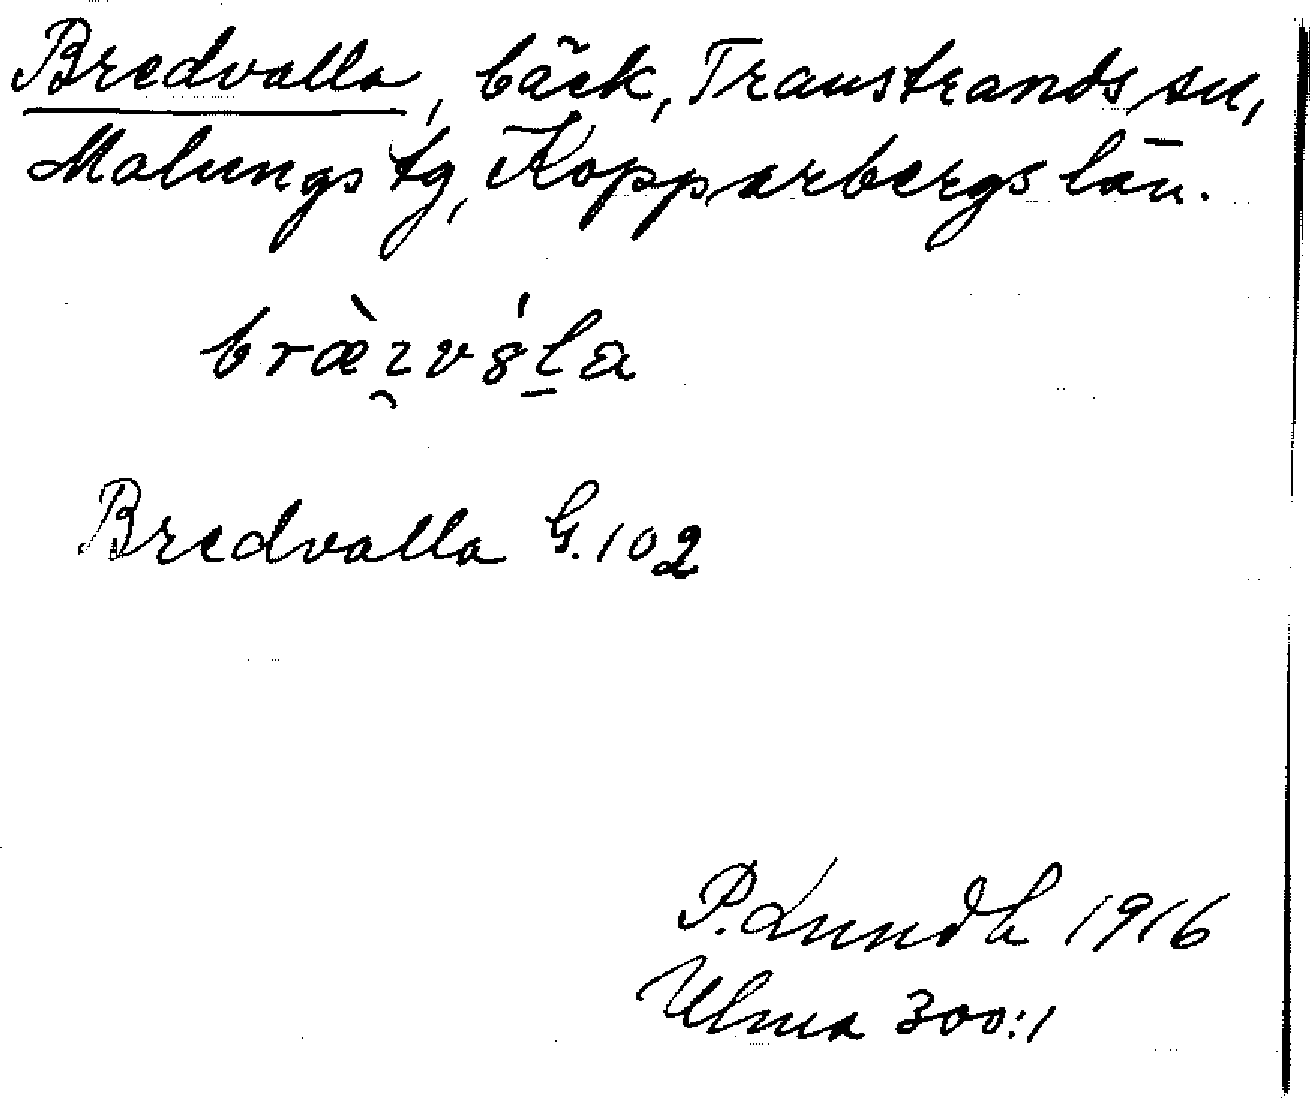 Bredvalla, bäck, Transtrands sn,
Malungs tg, Kopparbergs län.
Bredvalla G. 102
P. Lundh 1916
Ulma 300:1